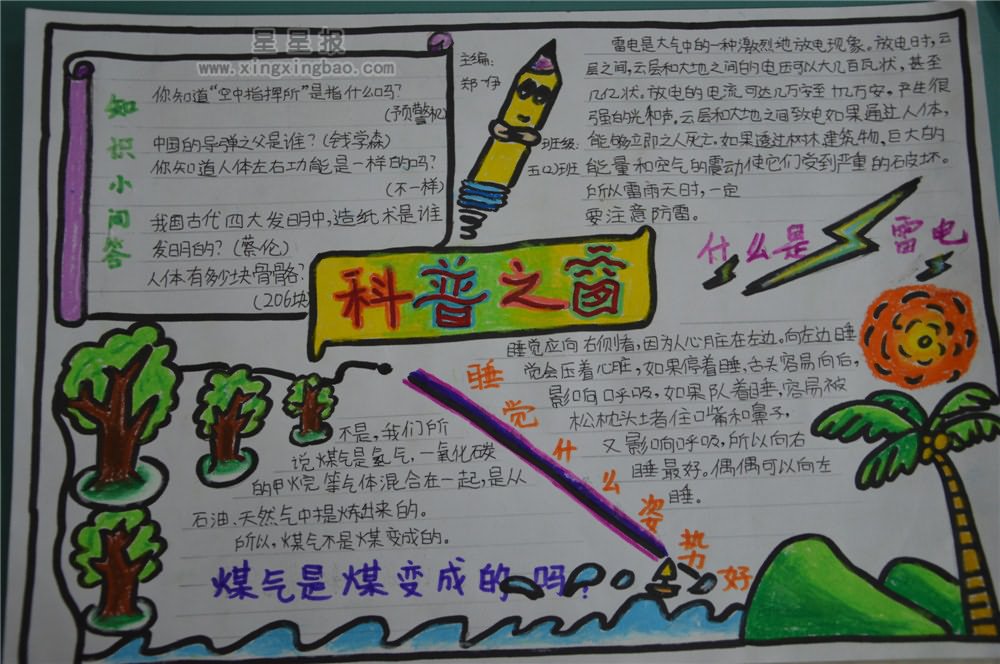 星星报
www.xingxingbao.com
知识小问答
你知道“空中指挥所”是指什么吗?
(预警机)
中国的导弹之父是谁?(钱学森)
你知道人体左右功能是一样的吗?
(不一样)
我国古代四大发明中,造纸术是谁
发明的?(蔡伦)
人体有多少块骨骼?
(206块
主编:
郑伊
班级:
五(2)班
科普之窗
雷电是大气中的一种激烈地放电现象。放电时,云
层之间,云层和大地之间的电压可以大几百瓦状,甚至
几亿状。放电的电流可达几万安至十几万安。产生很
强的光和声。云层和大地之间致电如果通过人体,
能够立即之人死亡。如果透过树林建筑物,巨大的
能量和空气的震动使它们受到严重的破坏。
所以雷雨天时,一定
要注意防雷。
什么是雷电
睡觉应向右侧着,因为人心脏在左边。向左边睡
觉会压着心脏,如果停着睡,舌头容易向后,
影响呼吸,如果队着睡,容易被
松枕头堵者住口嘴和鼻子,
又影响呼吸,所以向右
睡最好。偶偶可以向左
睡。
睡觉什么姿势好
不是,我们所
说煤气是氢气,一氧化碳
的甲烷等气体混合在一起,是从
石油、天然气中提炼出来的。
所以,煤气不是煤变成的。
煤气是煤变成的吗?